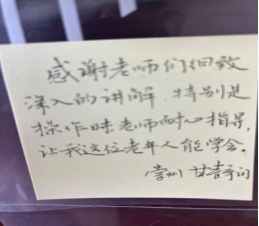 感谢老师们细致
深入的讲解，特别是
操作时老师耐心指导，
让我这位老年人能学会。
常州 甘